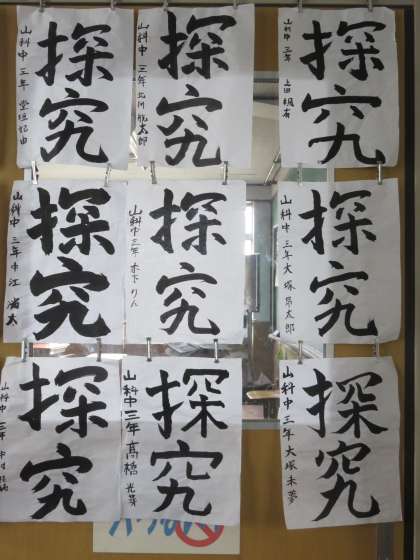 探究
山科中 三年
探究
山科中 三年 北川 航太郎
探究
山科中 三年 上田
探究
山科中 三年 中江
探究
山科中 三年 木下りん
探究
山科中 三年 大塚 昂太郎
探究
山科中 三年
探究
山科中 三年 高橋 光芽
探究
山科中 三年 大塚 未夢